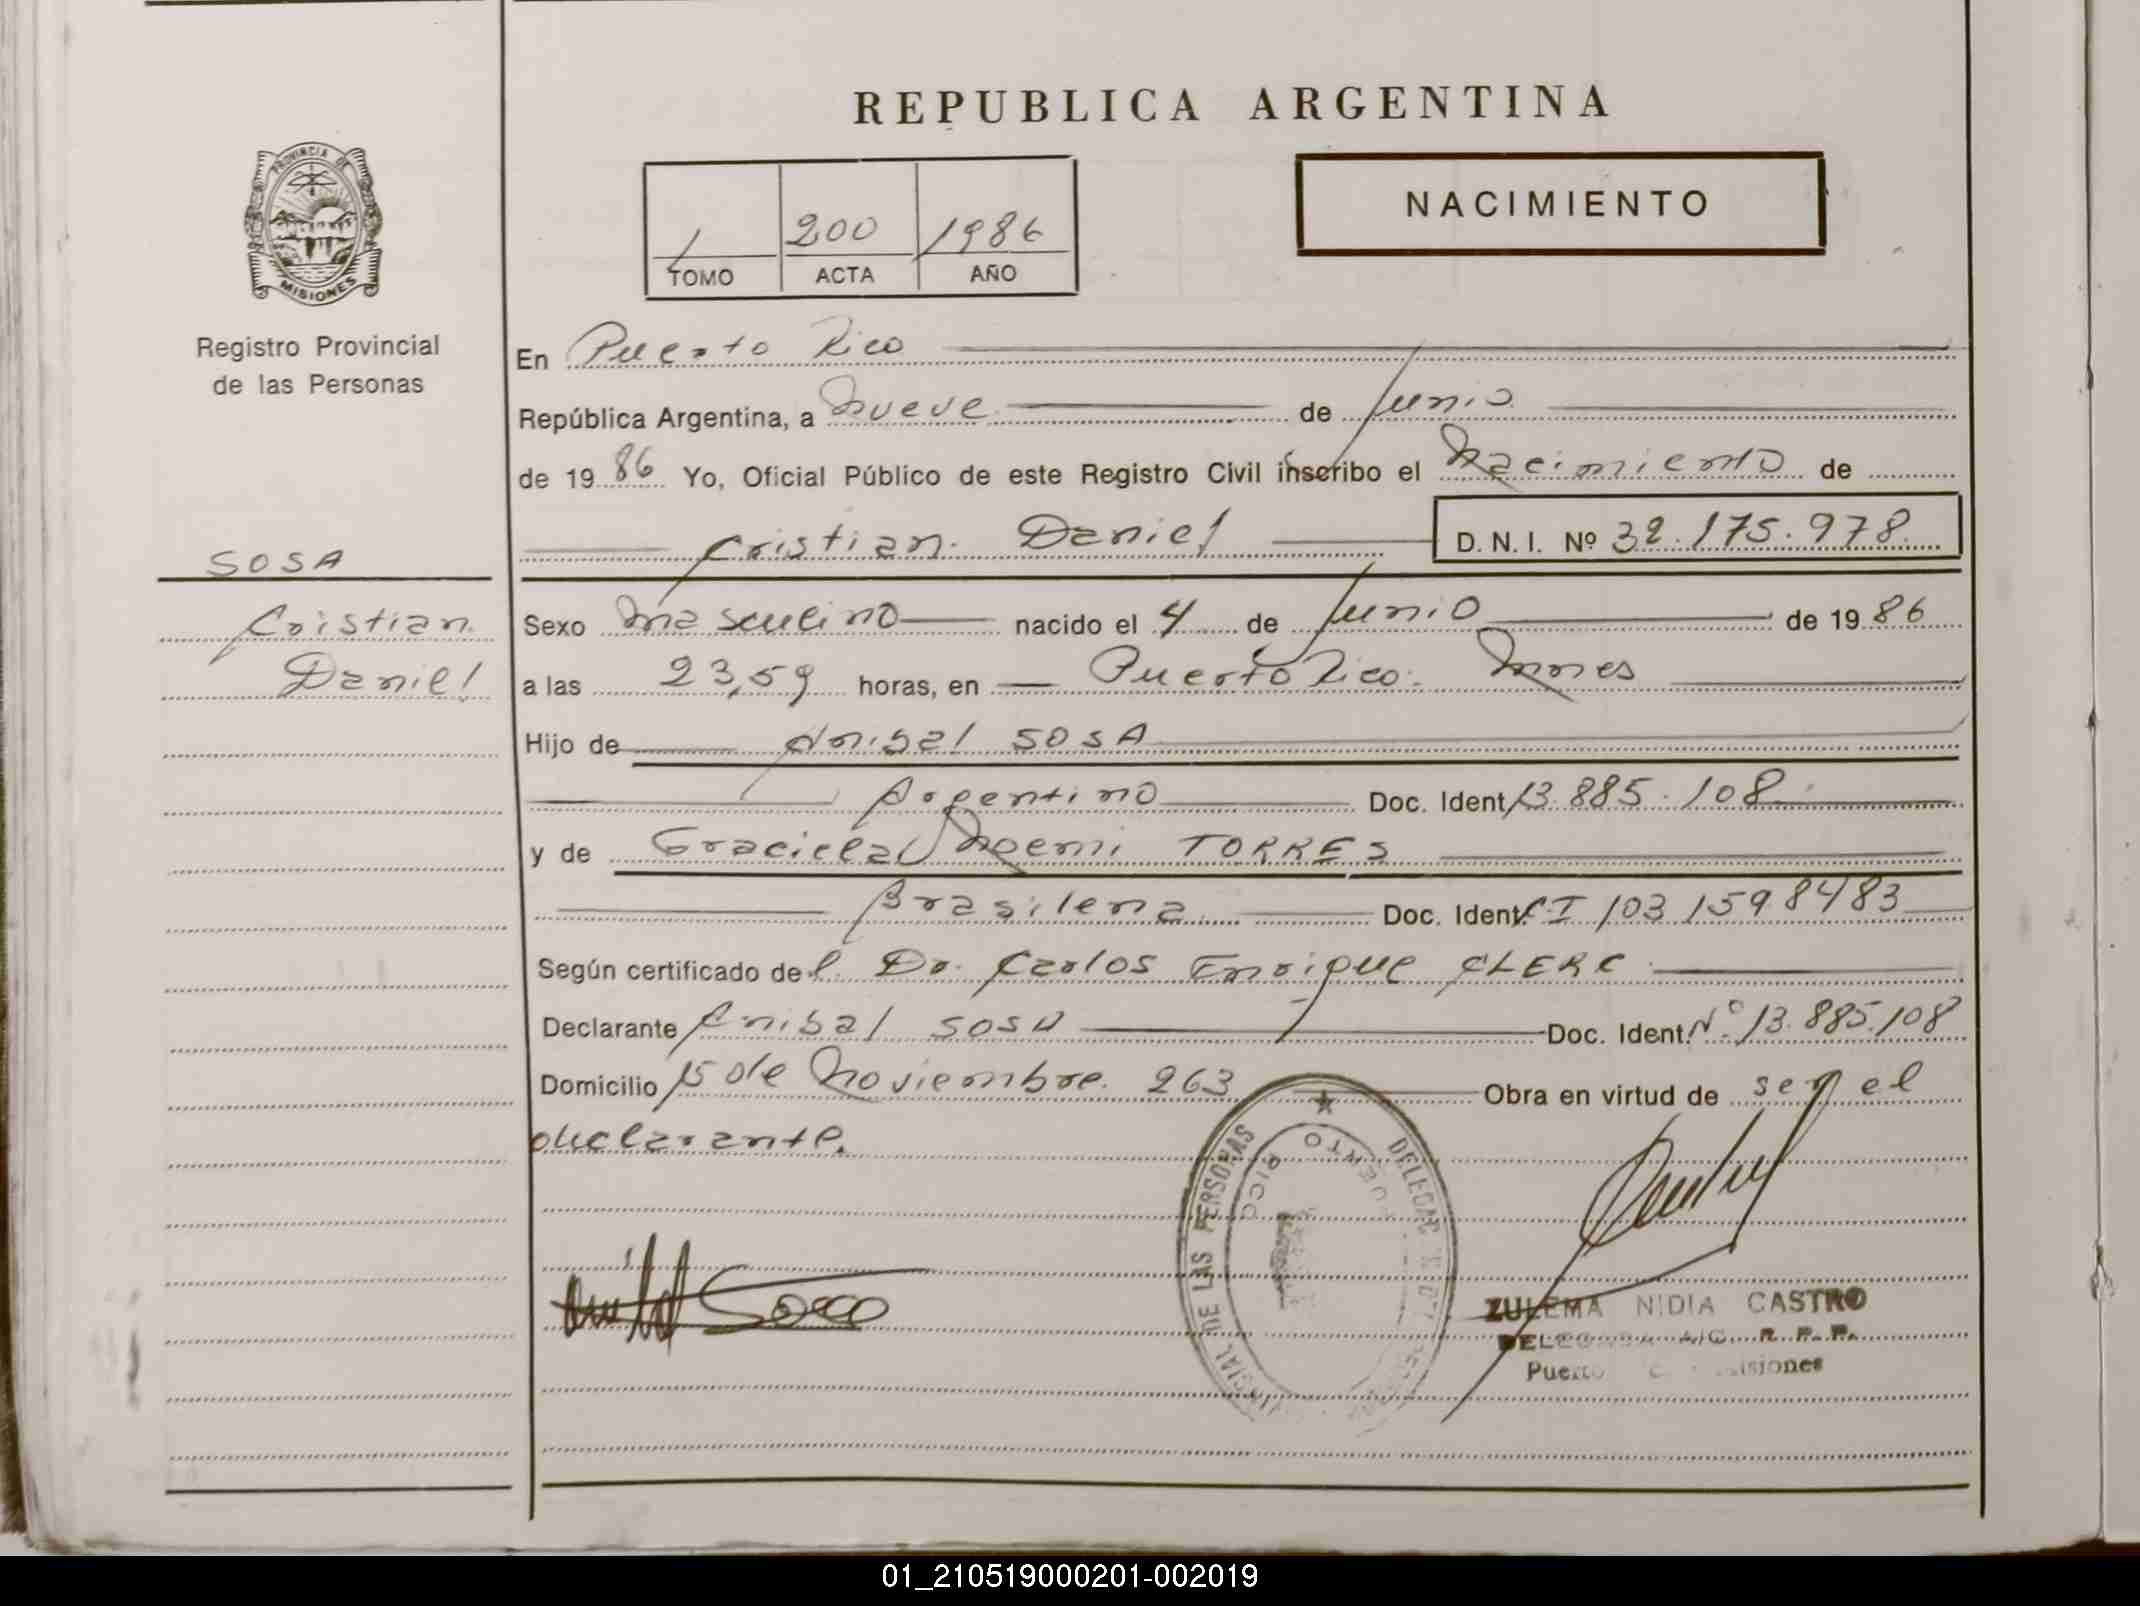 REPUBLICA ARGENTINA
PROVINCIA DE
MISIONES
Registro Provincial
de las Personas
1 200 1986
TOMO ACTA AÑO
NACIMIENTO
En Puerto Rico
República Argentina, a Nueve de Junio
de 1986 Yo, Oficial Público de este Registro Civil inscribo el Nacimiento de
Cristian Daniel D. N. I. Nº 32.175.978
SOSA
Cristian
Daniel
Sexo Masculino nacido el 4 de Junio de 1986
a las 23,59 horas, en Puerto Rico. Mnes
Hijo de Anibal SOSA
Argentino Doc. Ident. 13.885.108
y de Graciela Noemi TORRES
Brasilena Doc. Ident. CI 103 1598483
Según certificado del Dr. Carlos Enrique CLERC
Declarante Anibal SOSA Doc. Ident. Nº 13.885.108
Domicilio 15 de Noviembre 263 Obra en virtud de ser el
declarante.
DE LAS PERSONAS
PUERTO RICO
Sosa
ZULEMA NIDIA CASTRO
A/C. R. P. P.
Puerto Misiones
01_210519000201-002019